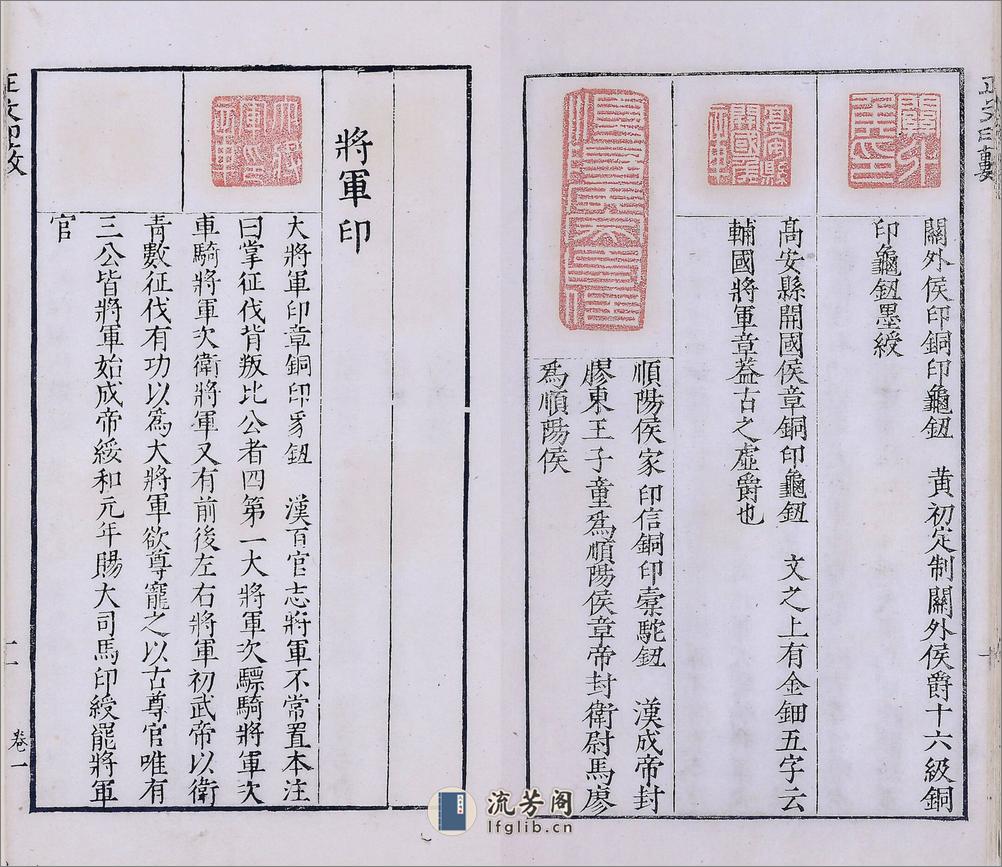 關外侯印
關外侯印銅印龜鈕　黃初定制關外侯爵十六級銅
印龜鈕墨綬
高安縣開國侯章
高安縣開國侯章銅印龜鈕　文之上有金鈿五字云
輔國將軍章蓋古之虛爵也
順陽侯家印信銅印槖駝鈕　漢成帝封
膠東王子童爲順陽侯章帝封衛尉馬廖
爲順陽侯
將軍印
大將軍印章
大將軍印章銅印豸鈕　漢百官志將軍不常置本注
曰掌征伐背叛比公者四第一大將軍次驃騎將軍次
車騎將軍次衛將軍又有前後左右將軍初武帝以衛
青數征伐有功以爲大將軍欲尊寵之以古尊官唯有
三公皆將軍始成帝綏和元年賜大司馬印綬罷將軍
官
卷一
流芳阁
lfglib.cn